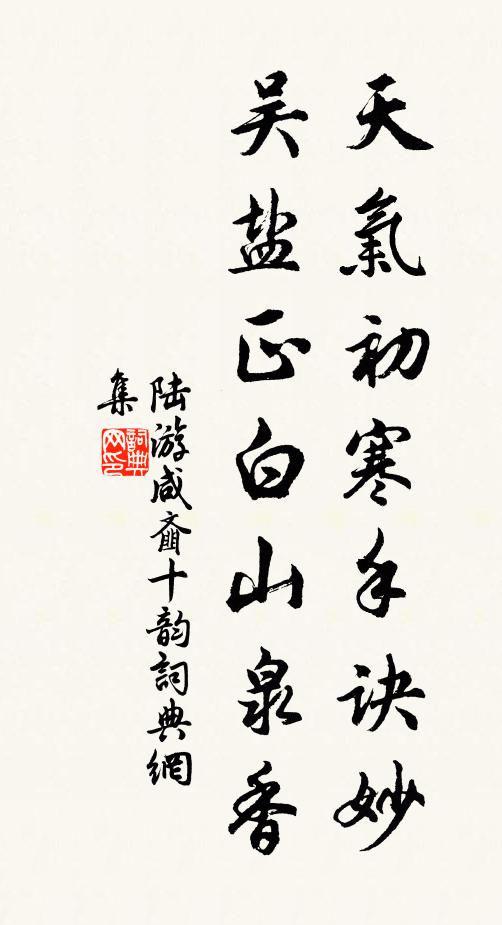 天氣初寒手訣妙
吴盐正白山泉香
陆游咸齑十韵詞典網
集
詞典
网印